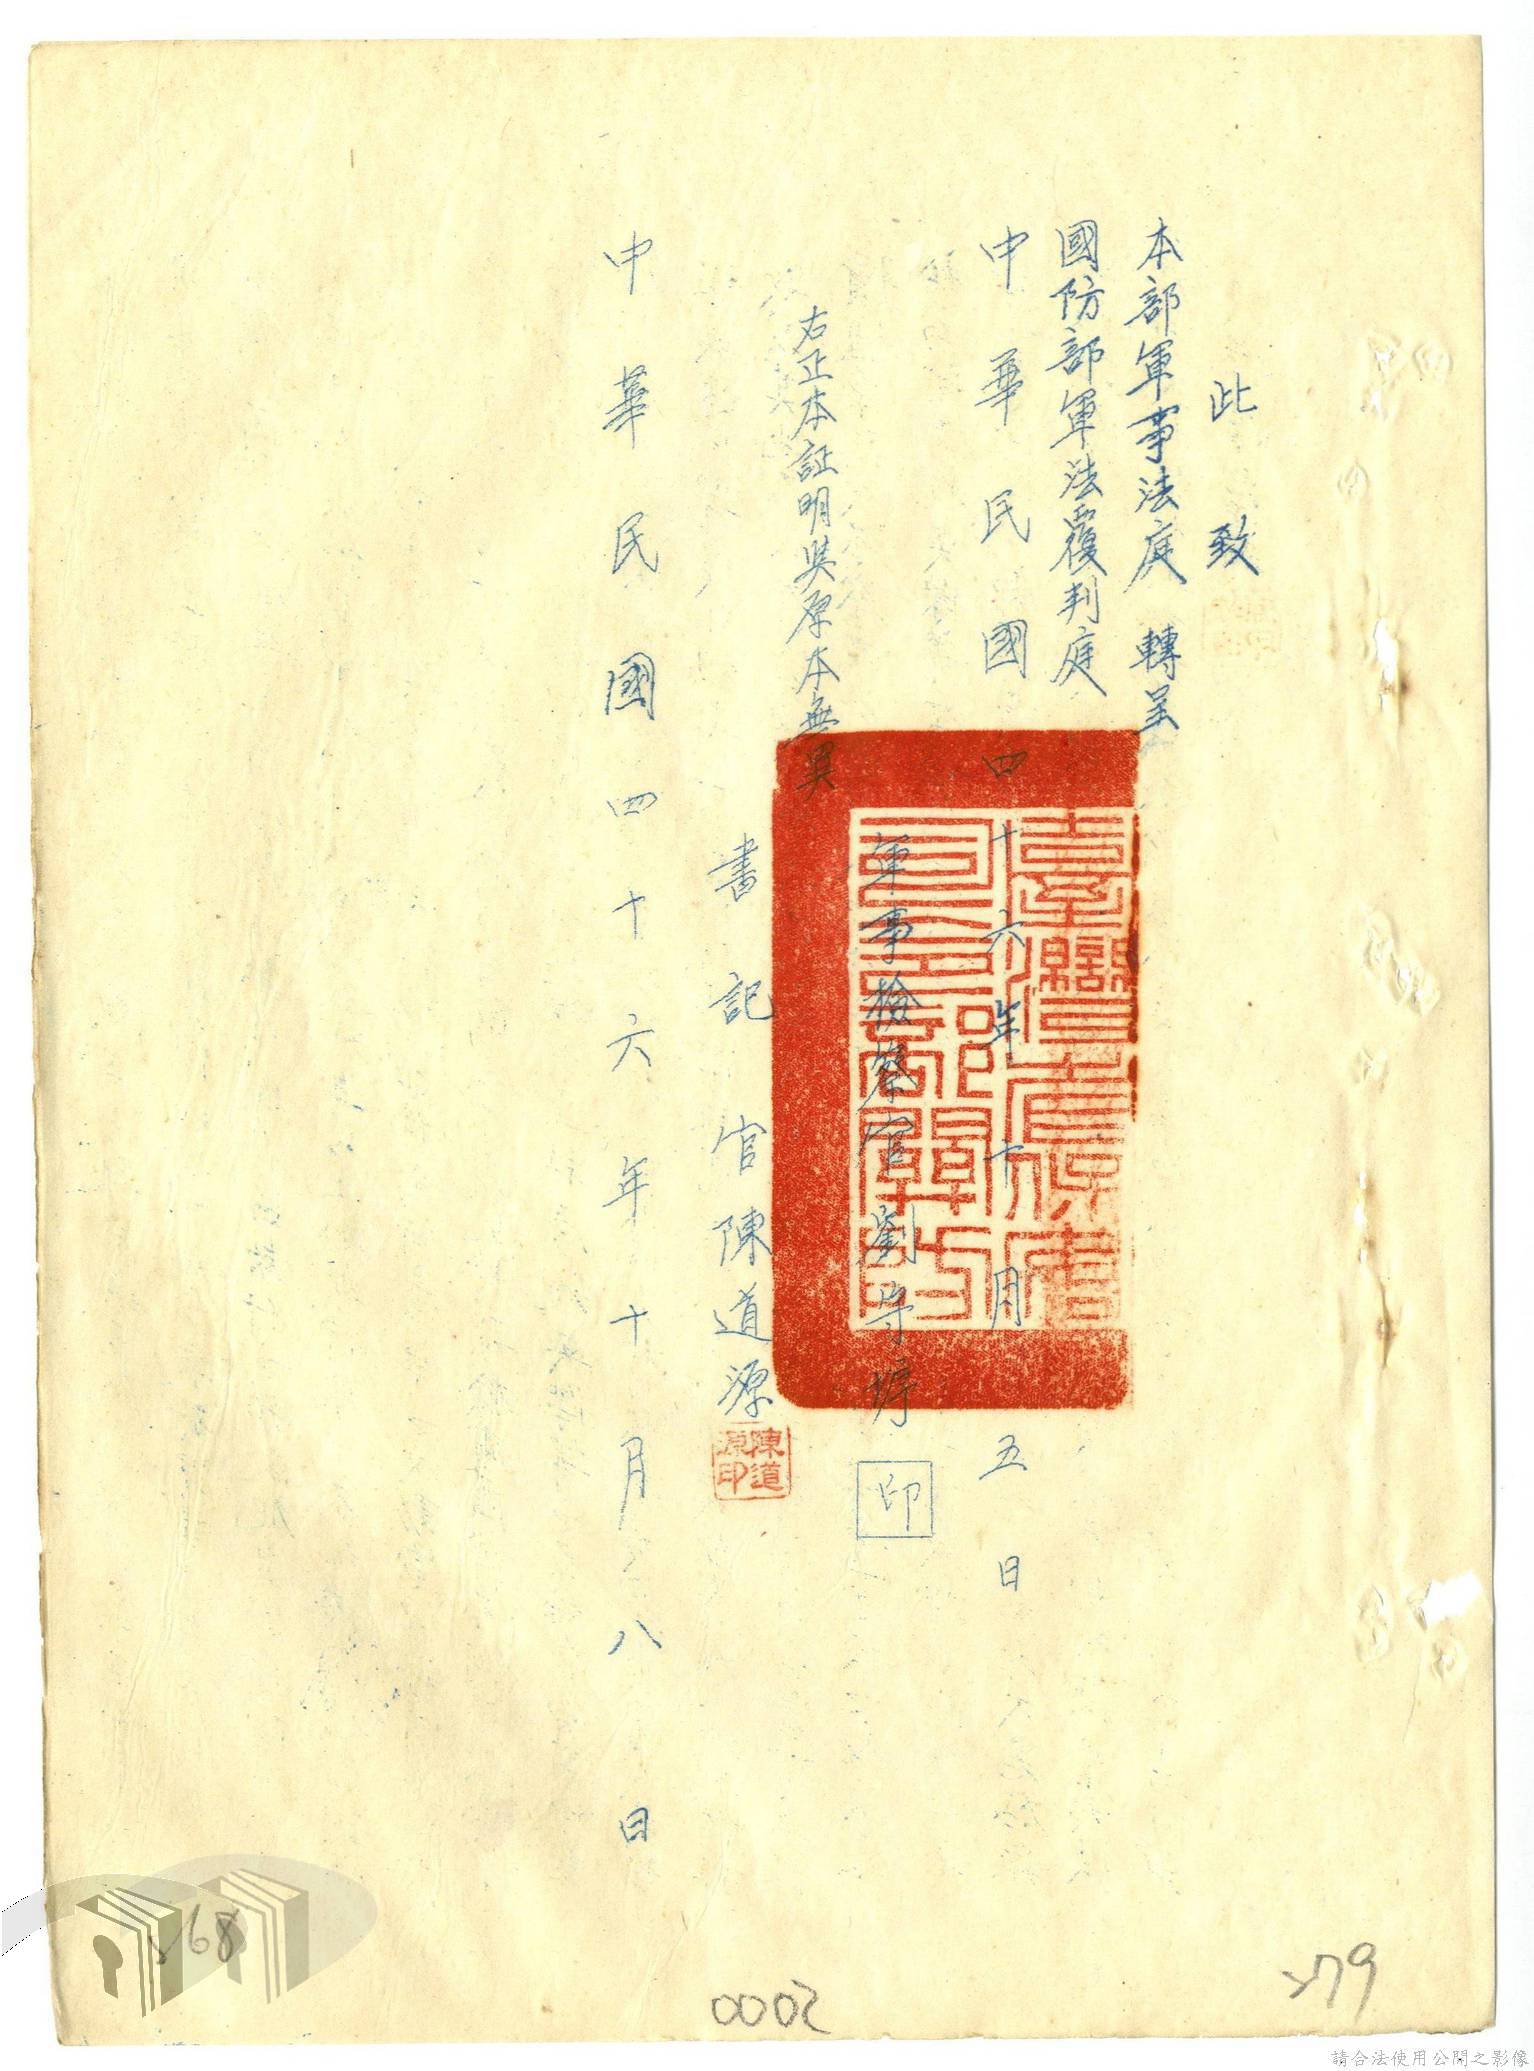 此致
本部軍事法庭 轉呈
國防部軍法覆判庭
中華民國四十六年十月五日
軍事檢察官劉守 印
右正本証明與原本無異
書記官陳道源
陳道源印
中華民國四十六年十月八日
268
0002
279
請合法使用公開之影像